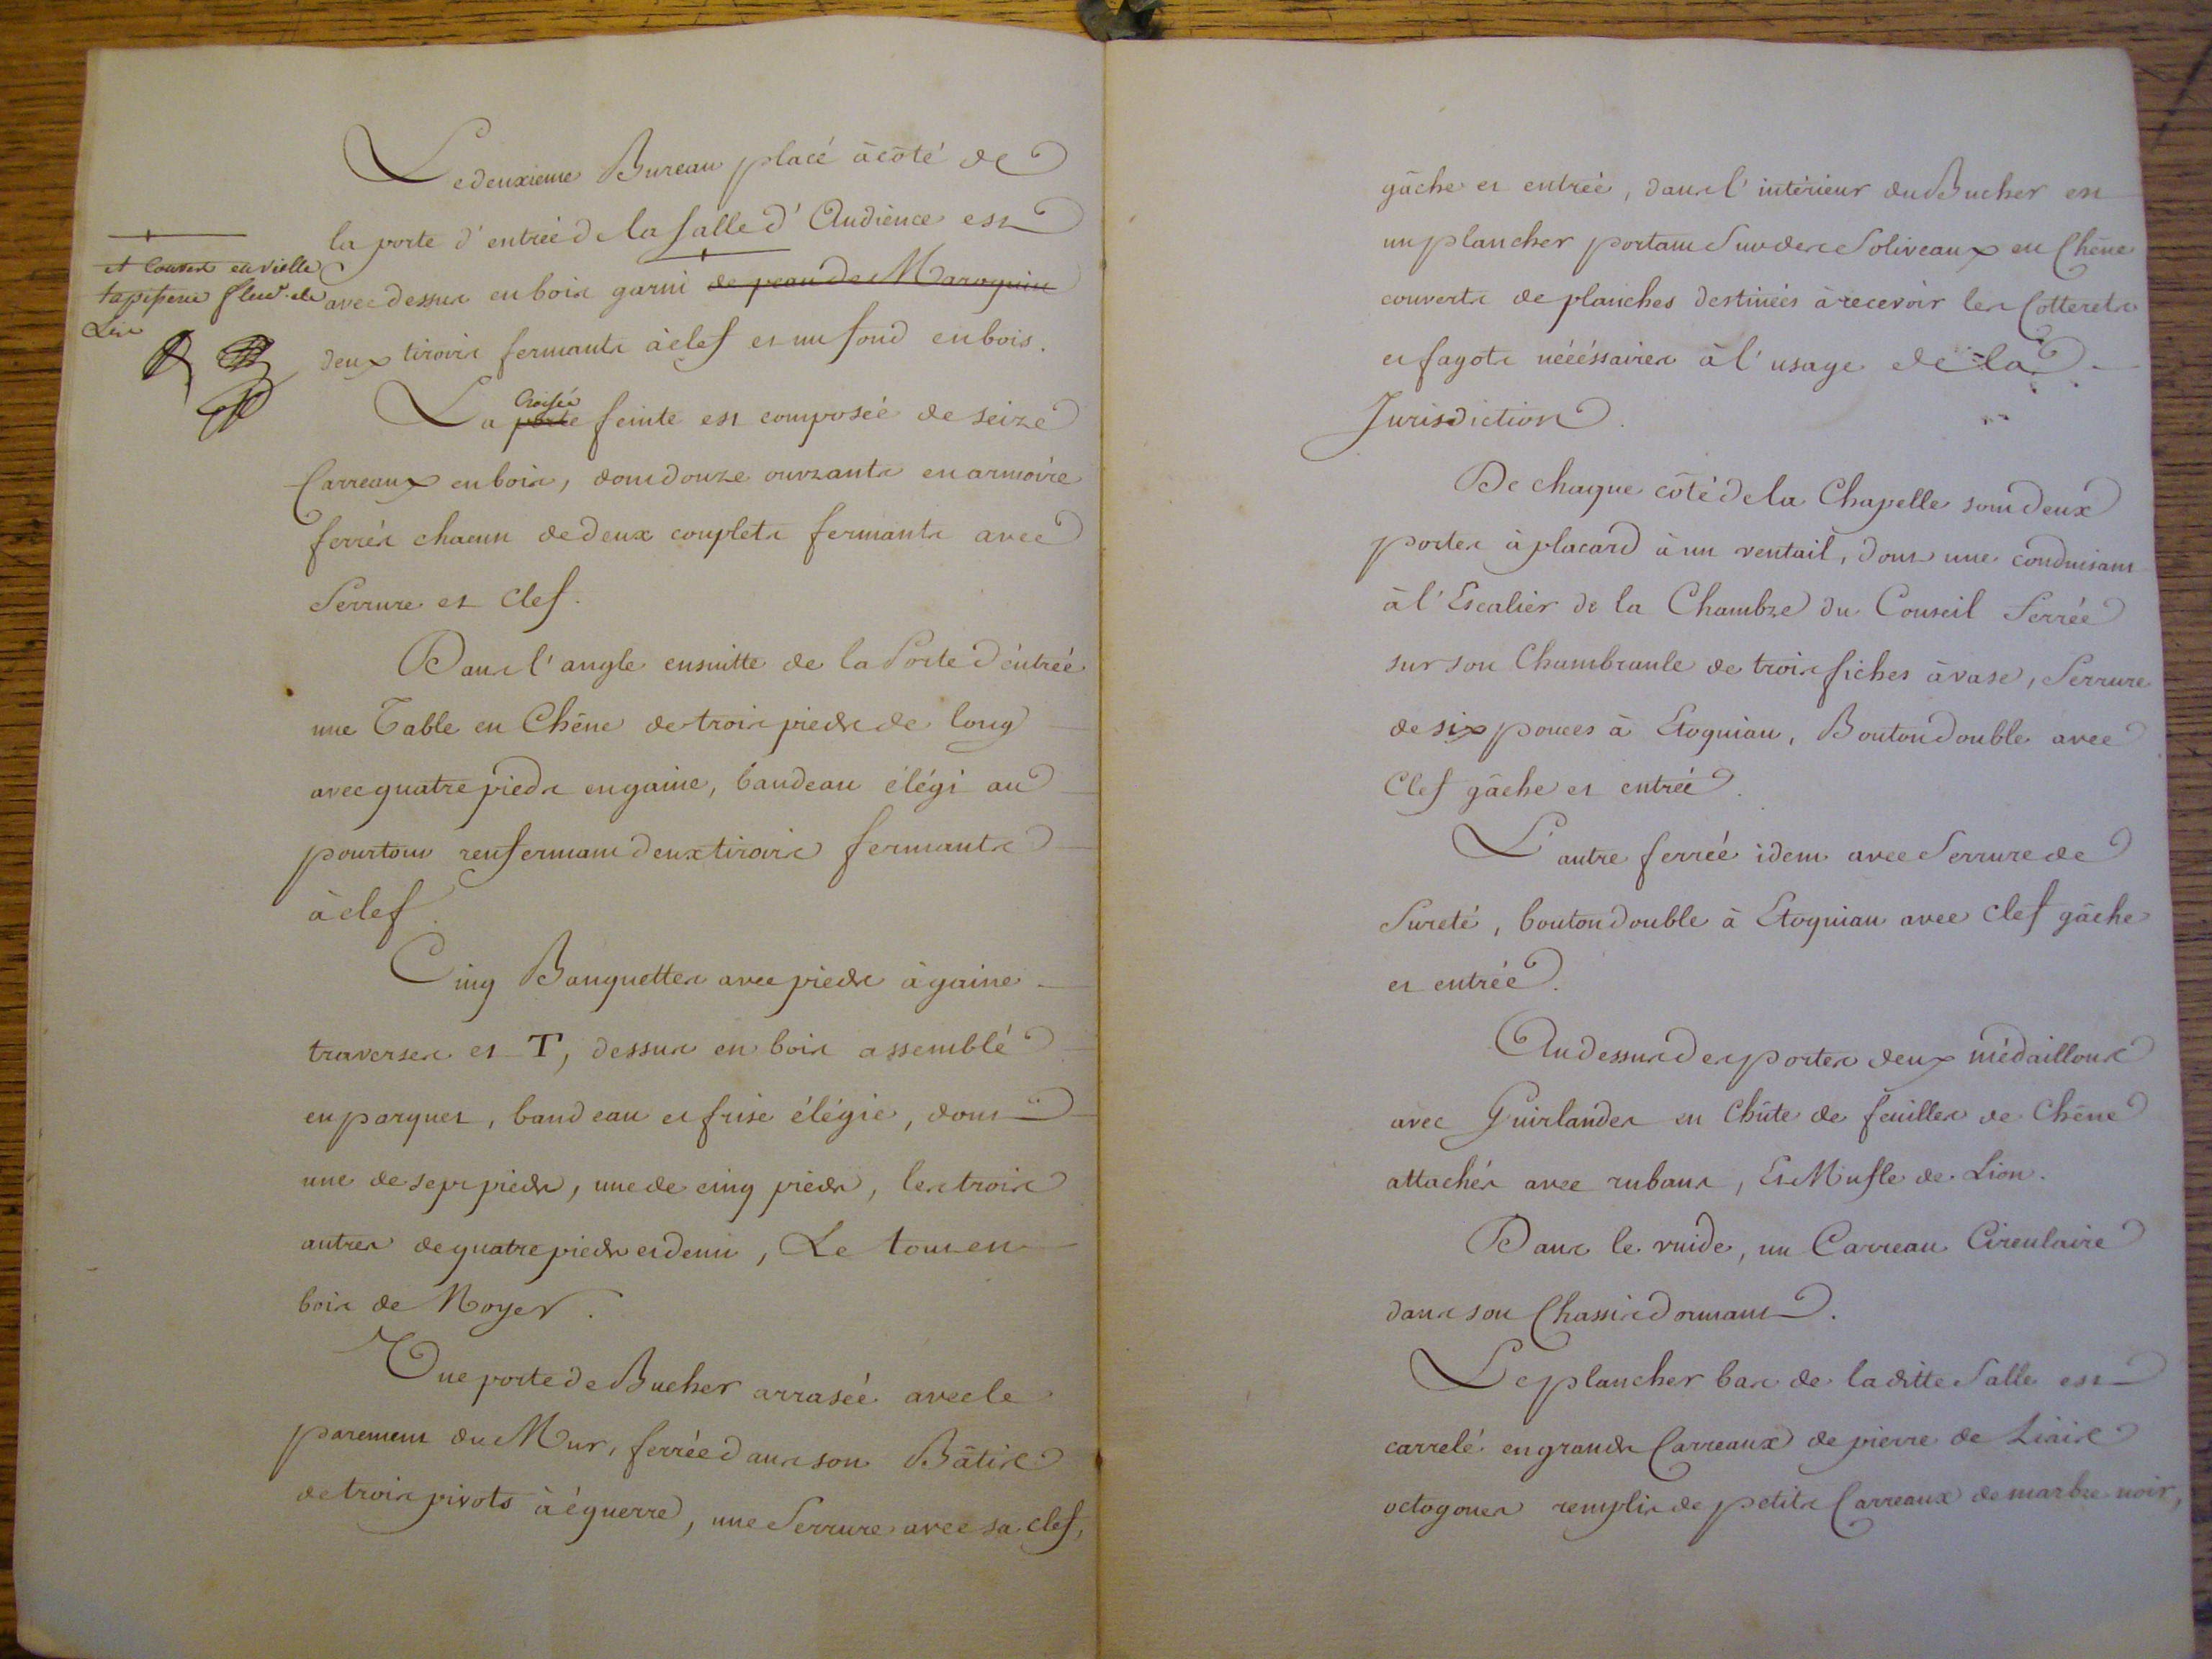 Le deuxieme Bureau placé à côté de
la porte d'entrée de la salle d'Audience est
avec dessus en bois garni de peau de Maroquin
deux tiroirs fermants à clef et un fond en bois.
et Couvert en vielle
tapisserie fleur de
Lis
Croisée
La porte feinte est composée de seize
Carreaux en bois, dont douze ouvrants en armoire
ferrés chacun de deux couplets fermants avec
Serrure et clef.
Dans l'angle ensuitte de la Porte d'éntrée
une Table en Chêne de trois pieds de long
avec quatre pieds en gaine, bandeau élégi au
pourtour renfermant deux tiroirs fermants
à clef.
Cinq Banquettes avec pieds à gaine
traverses et T, dessus en bois assemblé
en parquet, bandeau et frise élégie, dont
une de sept pieds, une de cinq pieds, les trois
autres de quatre pieds et demi, Le tout en
bois de Noyer.
Une porte de Bucher arrasée avec le
parement du Mur, ferrée dans son Bâtis
de trois pivots à équerre, une Serrure avec sa clef,
gâche et entrée, dans l'intérieur du Bucher est
un plancher portant sur des Soliveaux en Chêne
couverts de planches destinées à recevoir les Cotterets
et fagots nécéssaires à l'usage de la
Jurisdiction.
De chaque côté de la Chapelle sont deux
portes à placard à un ventail, dont une conduisant
à l'Escalier de la Chambre du Conseil ferrée
sur son Chambranle de trois fiches à vase, Serrure
de six pouces à Etoquiau, Bouton double avec
Clef gâche et entrée.
L'autre ferrée idem avec Serrure de
Sureté, bouton double à Etoquiau avec clef gâche
et entrée.
Au dessus des portes deux médaillons
avec Guirlandes en Chûte de feuilles de Chêne
attachés avec rubans, Et Mufle de Lion.
Dans le vuide, un Carreau Circulaire
dans son Chassis dormant.
Le plancher bas de la ditte Salle est
carrelé en grands Carreaux de pierre de Liais
octogones remplis de petits Carreaux de marbre noir,